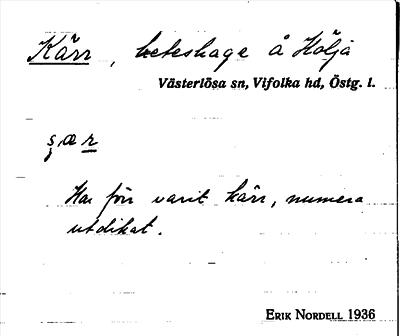 Kärr, beteshage å Hölja
Västerlösa sn, Vifolka hd, Östg. l.
Har förr varit kärr, numera
utdikat.
ERIK NORDELL 1936